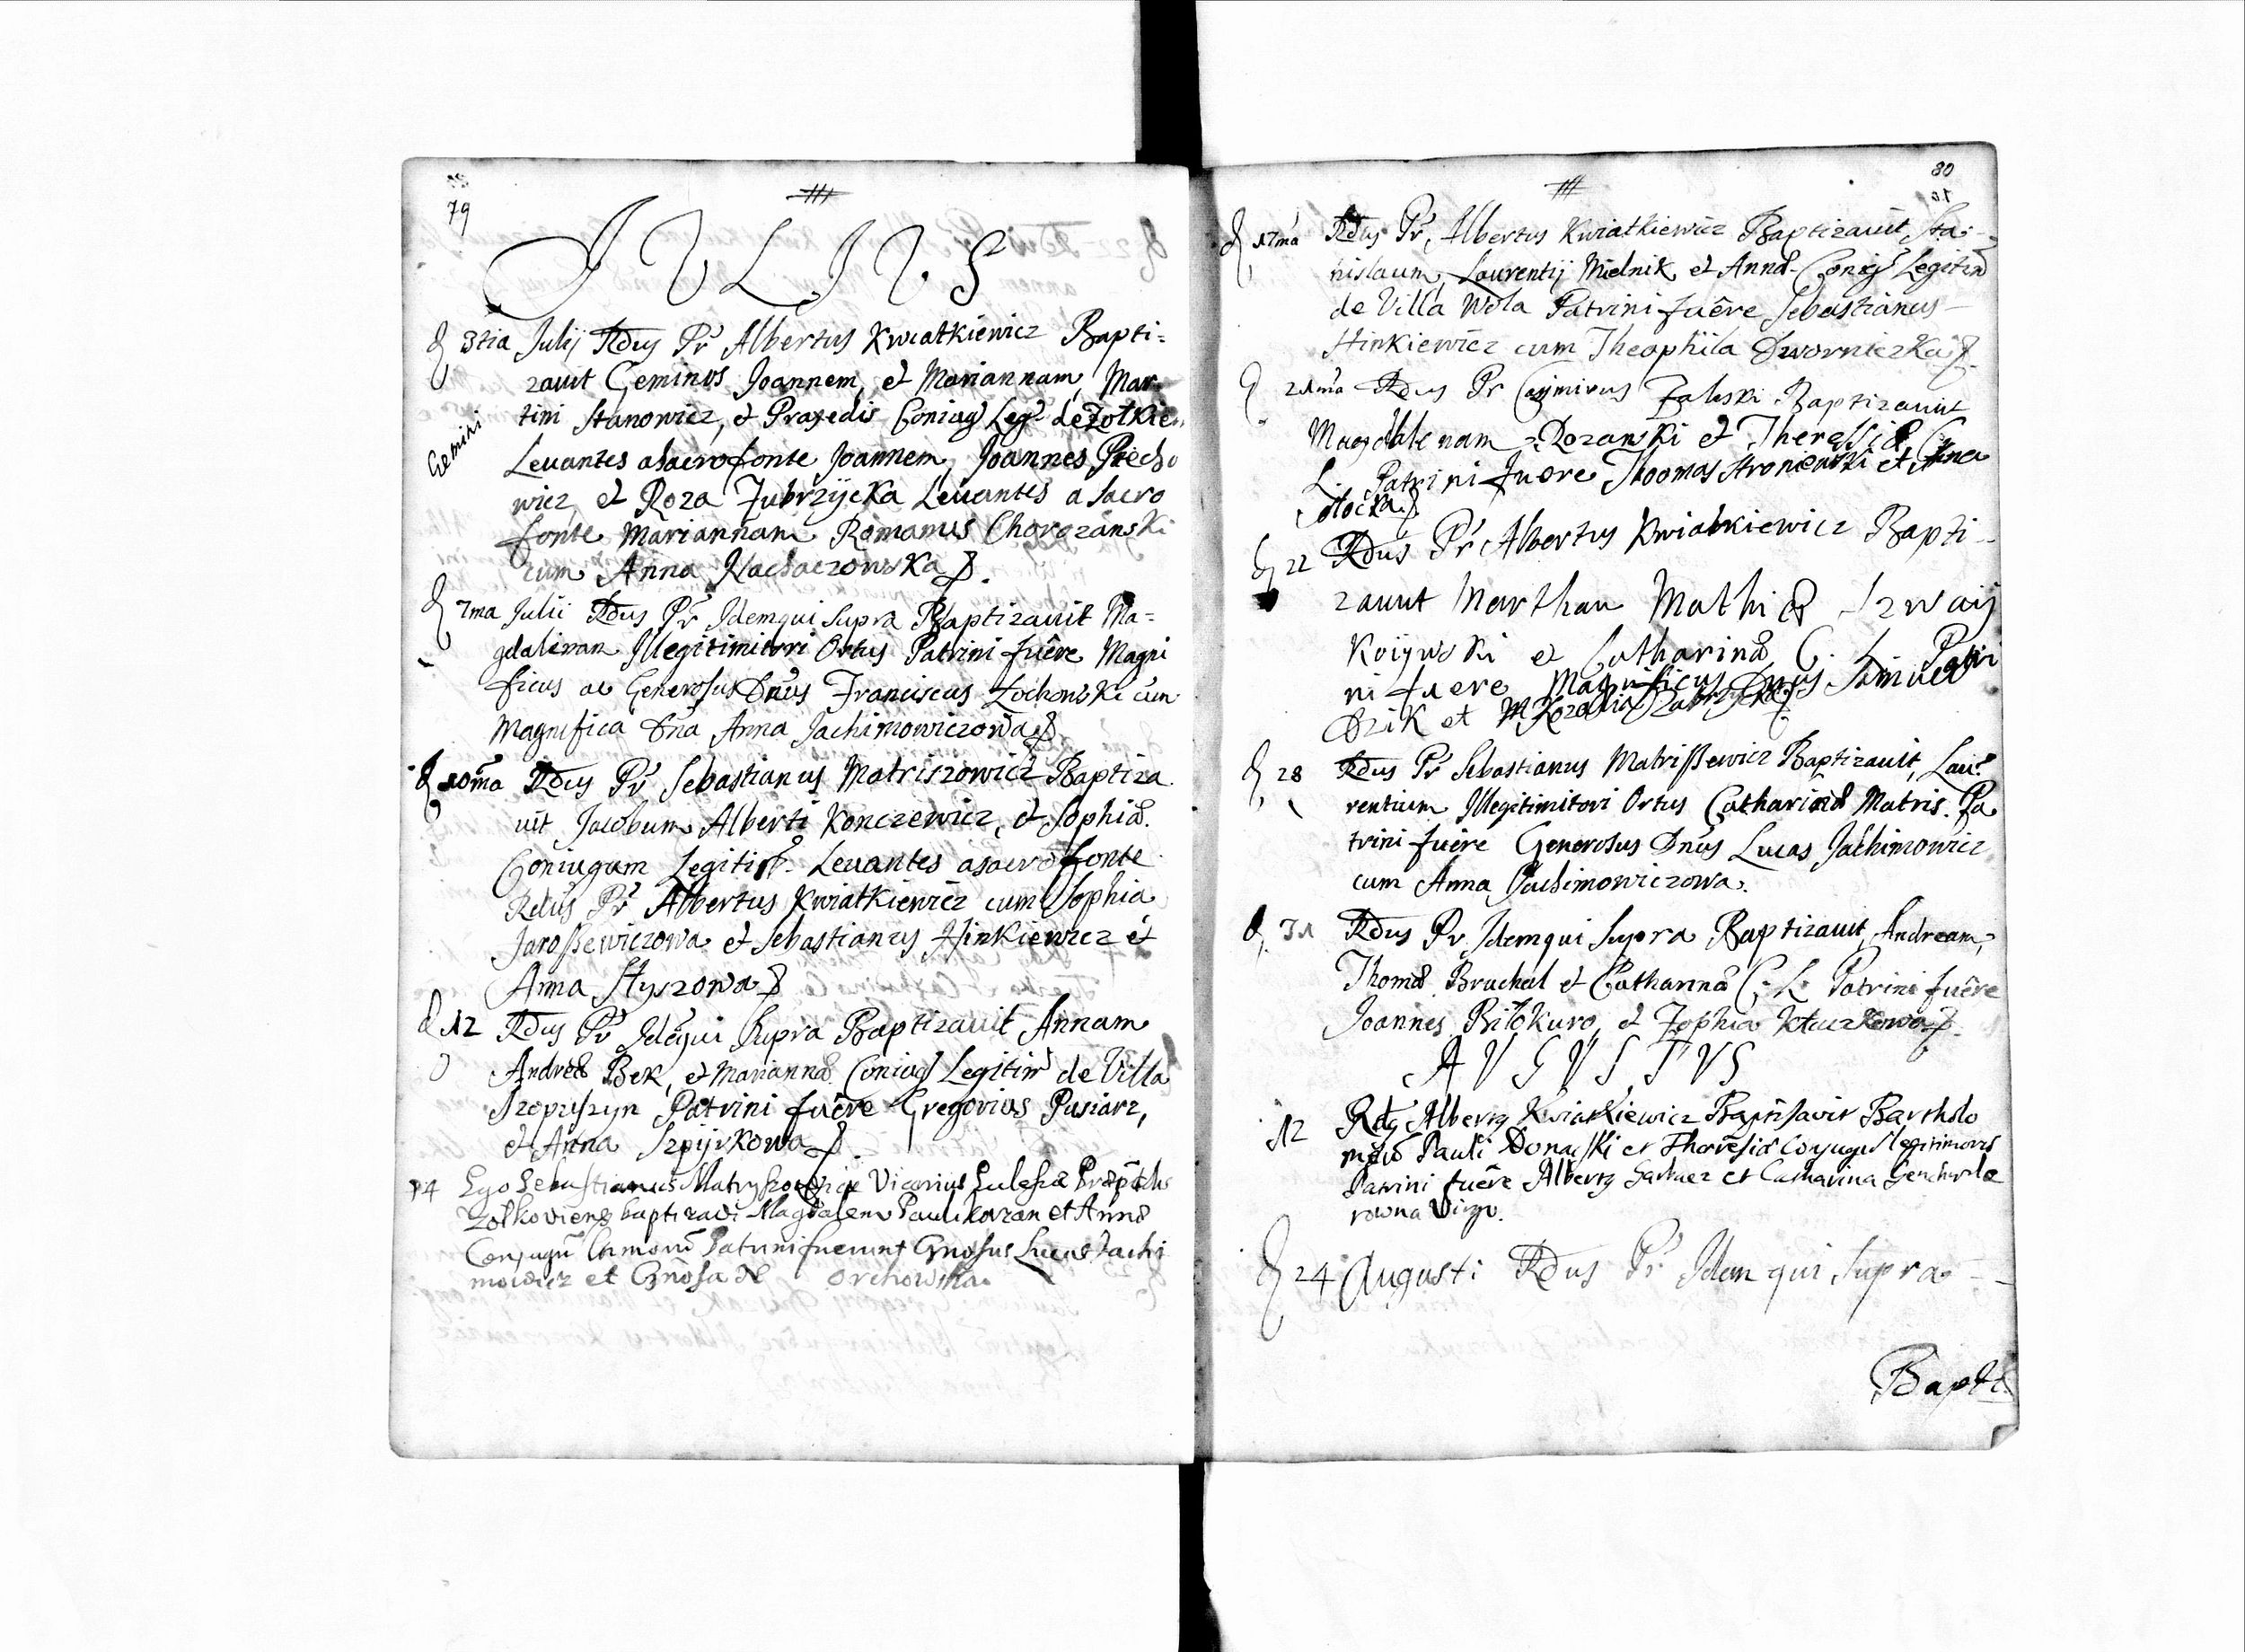 79
IVLIVS
3tia Julij Rdus Pr Albertus Kwiatkiewicz Bapti=
zauit Geminos Joannem, et Mariannam, Mar=
tini Stanowicz, et Praxedis Coniug Leg de Zolkie
Gemini
Leuantes a sacro fonte Joannem, Joannes Piecho
wicz, et Roza Zubrzycka Leuantes a sacro
fonte Mariannam Romanus Chorozanski
cum Anna
7ma Julii Rdus Pr Idem qui supra Baptizauit Ma=
gdalenam Illegitimitori Ortus Patrini fuêre Magni
ficus ac Generosus Dnus Franciscus Zochowski cum
Magnifica Dna Anna Jachimowiczowa
10ma Rdus Pr Sebastianus Matriszowicz Baptiza
uit Jacobum Alberti Konczewicz, et Sophiæ
Coniugum Legitim Leuantes a sacro fonte
Rdus Pr Albertus Kwiatkiewicz cum Sophia
Jarossewiczowa et Sebastianus Hinkiewicz et
Anna Styszowa
12 Rdus Pr Idē qui Supra Baptizauit Annam
Andreæ Bek, et Mariannæ Coniug Legitim de Villa
Patrini fuêre Gregorius Pusiarz,
et Anna Szpijrkowa
14 Ego Sebastianus Vicarius Eulesiæ
Zolkoviens baptizavi Magdalenā Pauli et Annæ
Conjugū Patrini fuerunt Gnosus Lucas Jachi
mowicz et Gnosa N Orchowska
80
17ma Rdus Pr Albertus Kwiatkiewicz Baptizauit Sta=
nislaum, Laurentij Mielnik et Annæ Coniug Legitim
de Villa Wola Patrini fuêre Sebastianus
Hinkiewicz cum Theophila Dworniczka
21ma Rdus Pr Casimirus Zaluski Baptizauit
Magdalenam Rozanski et Theressiæ C
L. Patrini fuere Thoomas Stroniewski et Anna
22 Rdus Pr Albertus Kwiatkiewicz Bapti=
zauit Martham Mathiæ Szwaij
Koijwski et Catharinæ C. L. Patri
ni fuere Magnificus Dnus Samuel
Dzik et
28 Rdus Pr Sebastianus Matrissewicz Baptizauit, Lau=
rentium Illegitimitori Ortus Catharinæ Matris. Pa
trini fuêre Generosus Dnus Lucas Jachimowicz
cum Anna Jachimowiczowa.
31 Rdus Pr Idem qui Supra Baptizauit, Andream,
Thomæ Bruchal et Catharinæ C. L. Patrini fuêre
Joannes Bilokuro, et Zophia
AVGVSTVS
12 Rdus Albertus Kwiatkiewicz Baptisavit Bartholo
mæū Pauli et Theresiæ Conjugū legitimorū
Patrini fuêre Albertus et Catharina
rowna Virgo.
24 Augusti Rdus Pr Idem qui Supra
Bapti